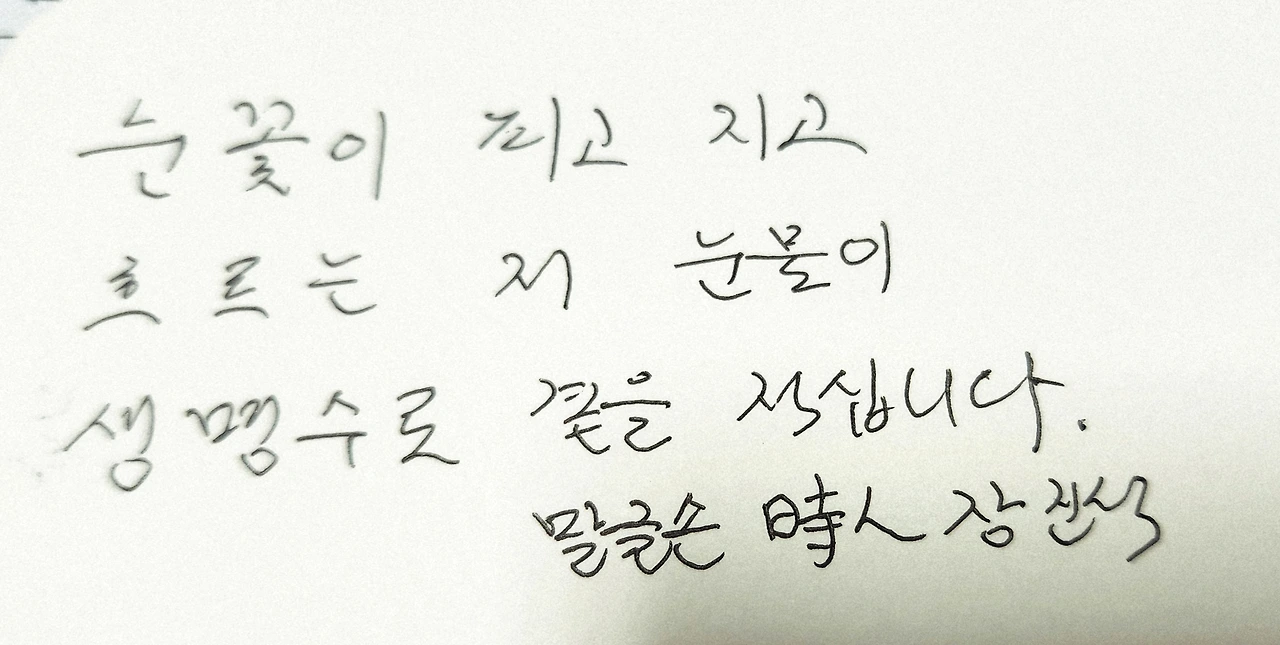 눈꽃이 피고 지고
흐르는 저 눈물이
생명수로 곁을 적십니다.
말글손 時人 장진석